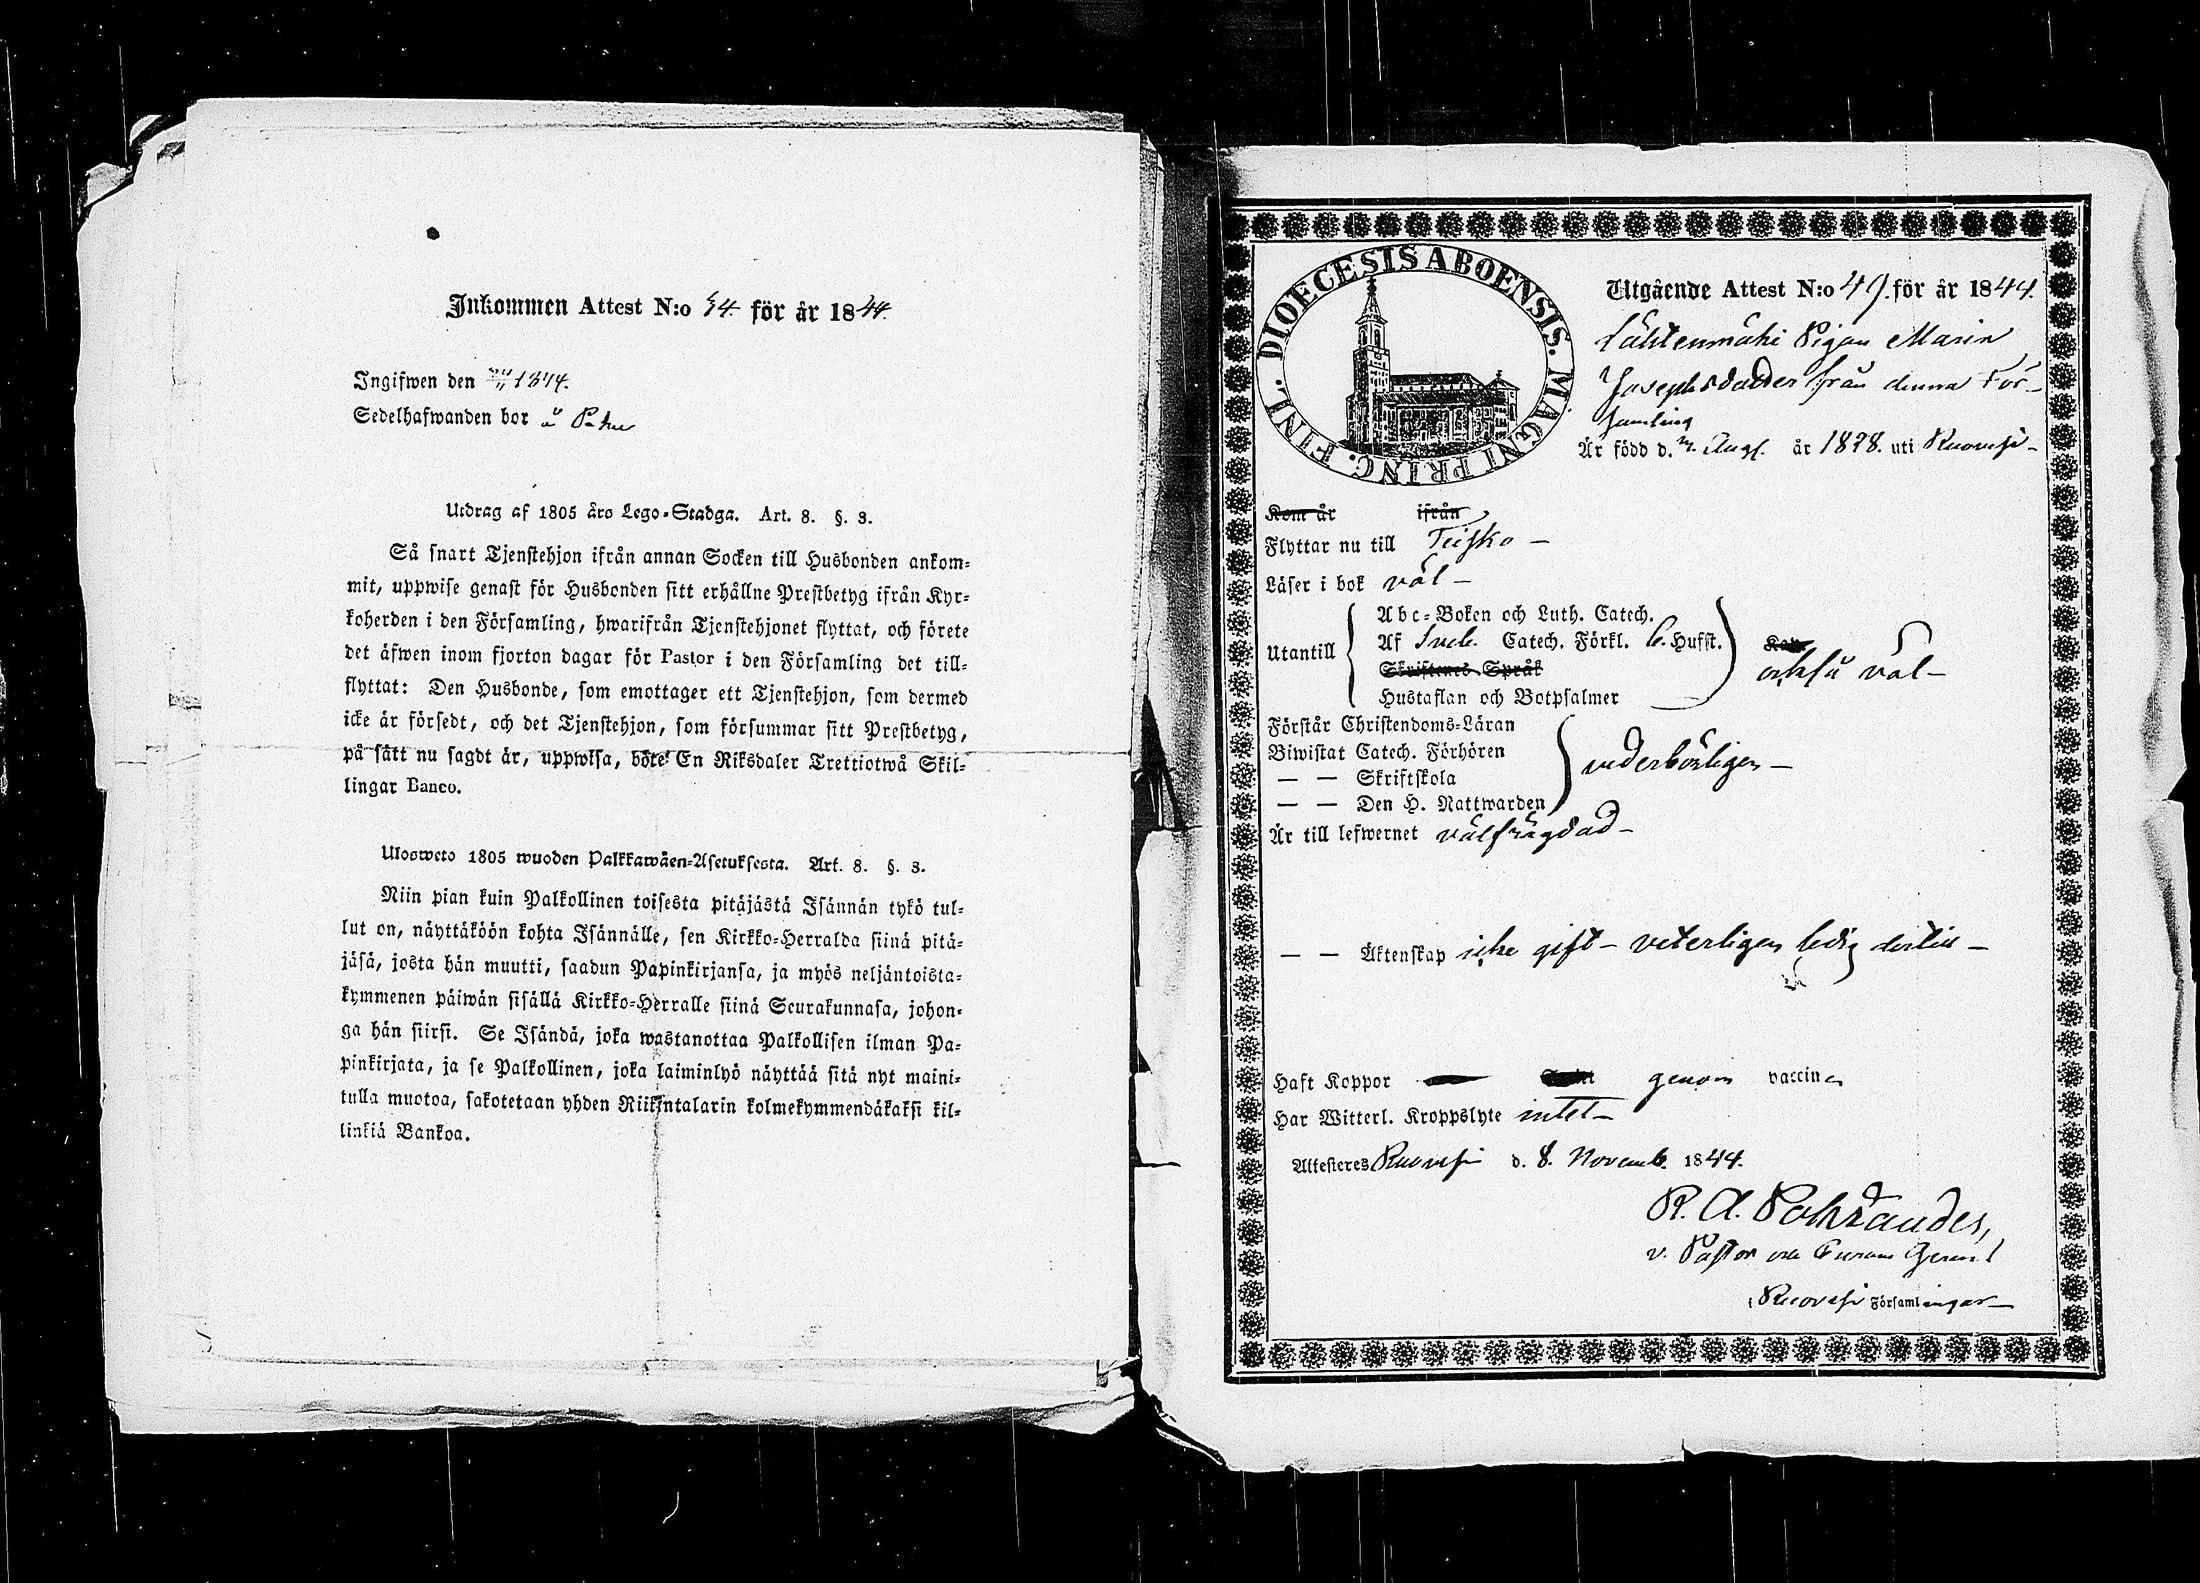 Inkommen Attest N:o 54. för år 1844.
Ingifwen den 24/11 1844.
Sedelhafwanden bor å
Utdrag af 1805 års Lego-Stadga. Art. 8. §. 3.
Så snart Tjenstehjon ifrån annan Socken till Husbonden ankom-
mit, uppwise genast för Husbonden sitt erhållne Prestbetyg ifrån Kyr-
koherden i den Församling, hwarifrån Tjenstehjonet flyttat, och förete
det äfwen inom fjorton dagar för Pastor i den Församling det till-
flyttat: Den Husbonde, som emottager ett Tjenstehjon, som dermed
icke är försedt, och det Tjenstehjon, som försummar sitt Prestbetyg,
på sätt nu sagdt är, uppwisa, böte En Riksdaler Trettiotwå Skil-
lingar Banco.
Ulosweto 1805 wuoden Palkkawäen-Asetuksesta. Art. 8. §. 3.
Niin pian kuin Palkollinen toisesta pitäjästä Isännän tykö tul-
lut on, näyttäköön kohta Isännälle, sen Kirkko-Herralda siinä pitä-
jäsä, josta hän muutti, saadun Papinkirjansa, ja myös neljäntoista-
kymmenen päiwän sisällä Kirkko-Herralle siinä Seurakunnasa, johon-
ga hän siirsi. Se Isändä, joka wastanottaa Palkollisen ilman Pa-
pinkirjata, ja se Palkollinen, joka laiminlyö näyttää sitä nyt maini-
tulla muotoa, sakotetaan yhden Riikintalarin kolmekymmendäkaksi kil-
linkiä Bankoa.
DIOECESIS ABOENSIS. MAGNI PRINC. FINL.
Utgående Attest N:o 49. för år 1844.
Lähtenmäki Pigan Maria
Josephsdotter från denna För-
samling
Är född d. Aug. år 1828. uti Ruovesi-
Kom år ifrån
Flyttar nu till Teisko -
Läser i bok väl -
Utantill
Abc-Boken och Luth. Catech.
Af Sveb. Catech. Förkl. C. Hufst.
Skriftenes Språk
Hustaflan och Botpsalmer
också väl -
Förstår Christendoms-Läran
Biwistat Catech. Förhören
— — Skriftskola
— — Den H. Nattwarden
vederbörligen -
Är till lefwernet välfrägdad -
— — Äktenskap icke gift - veterligen ledig dertill -
Haft Koppor genom vaccinen
Har Witterl. Kroppslyte intet -
Attesteres Ruovesi d. 8. Novemb. 1844.
R. A.
v. Pastor
i Ruovesi Församlingar -